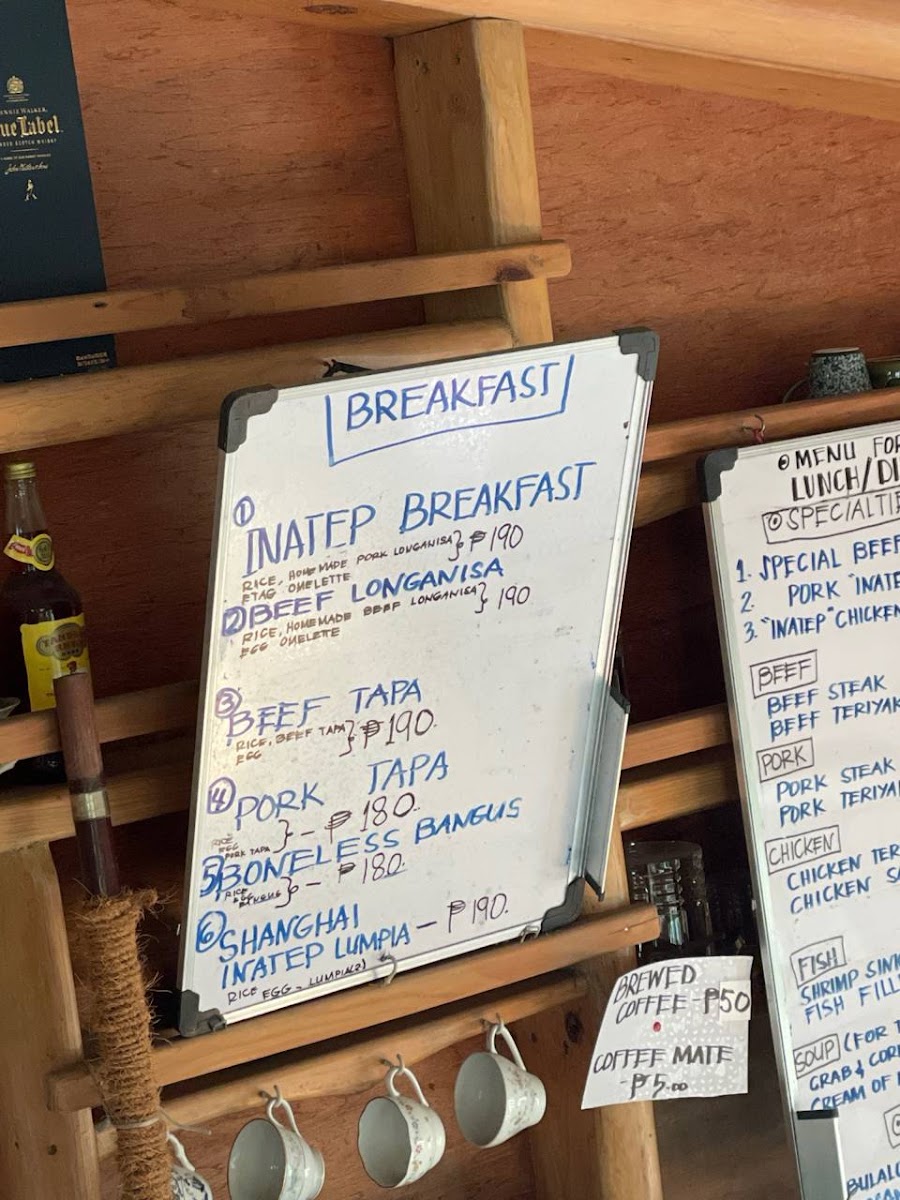 BREAKFAST
① INATEP BREAKFAST
RICE, HOMEMADE PORK LONGANISA } ₱190
ETAG OMELETTE
② BEEF LONGANISA
RICE, HOMEMADE BEEF LONGANISA } 190
EGG OMELETE
③ BEEF TAPA
RICE, BEEF TAPA } ₱190.
EGG
④ PORK TAPA
RICE
EGG
PORK TAPA } - ₱180.
5 BONELESS BANGUS
RICE
EGG
BANGUS } - ₱180.
⑥ SHANGHAI
INATEP LUMPIA - ₱190.
RICE EGG - LUMPIA(2)
BREWED
COFFEE - ₱50
COFFEE MATE
- ₱5.00
MENU FOR
LUNCH/DI
SPECIALTIE
1. SPECIAL BEEF
2. PORK "INATE
3. "INATEP" CHICKEN
BEEF
BEEF STEAK
BEEF TERIYAK
PORK
PORK STEAK
PORK TERIYA
CHICKEN
CHICKEN TER
CHICKEN S
FISH
SHRIMP SINI
FISH FILL
SOUP (FOR
CRAB & COR
CREAM OF
BULAL
ue Label
John Walker & Sons